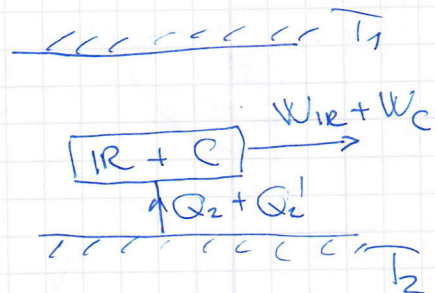 T₁
W_IR + W_C
IR + C
Q₂ + Q₂'
T₂